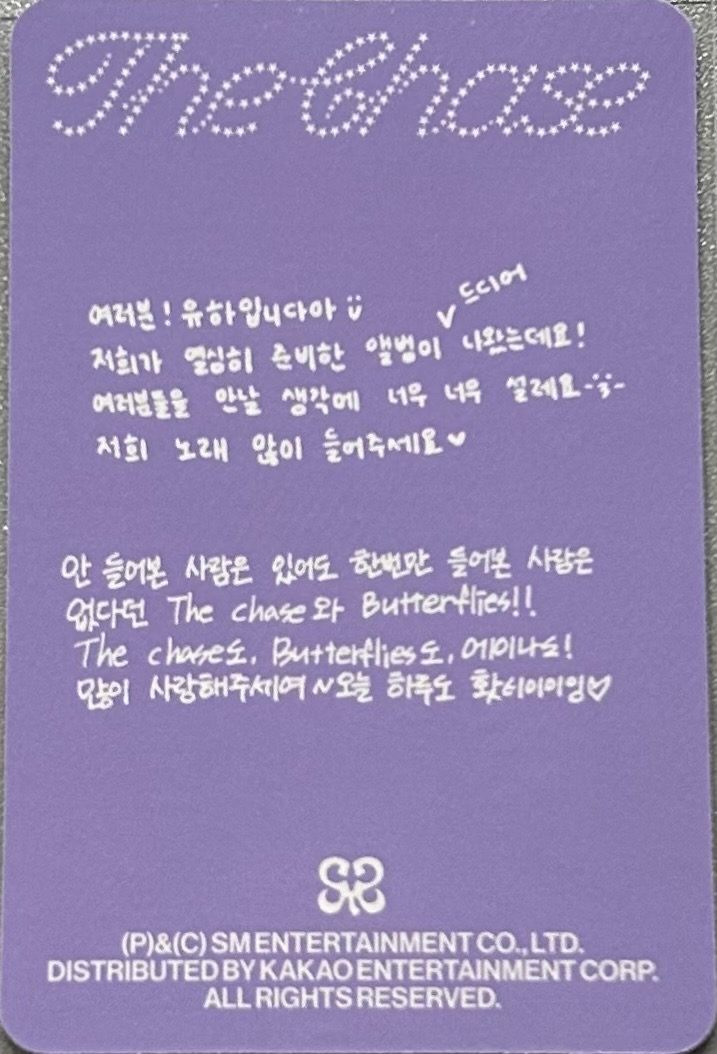 The Chase
여러분! 유하입니다아
저희가 열심히 준비한 앨범이 드디어 나왔는데요!
여러분들을 만날 생각에 너우 너우 설레요
저희 노래 많이 들어주세요♥
안 들어본 사람은 있어도 한번만 들어본 사람은
없다던 The chase와 Butterflies!!
The chase도, Butterflies도, 에이나도!
많이 사랑해주세여~오늘 하루도 홧티이이잉♡
(P)&(C) SM ENTERTAINMENT CO., LTD.
DISTRIBUTED BY KAKAO ENTERTAINMENT CORP.
ALL RIGHTS RESERVED.